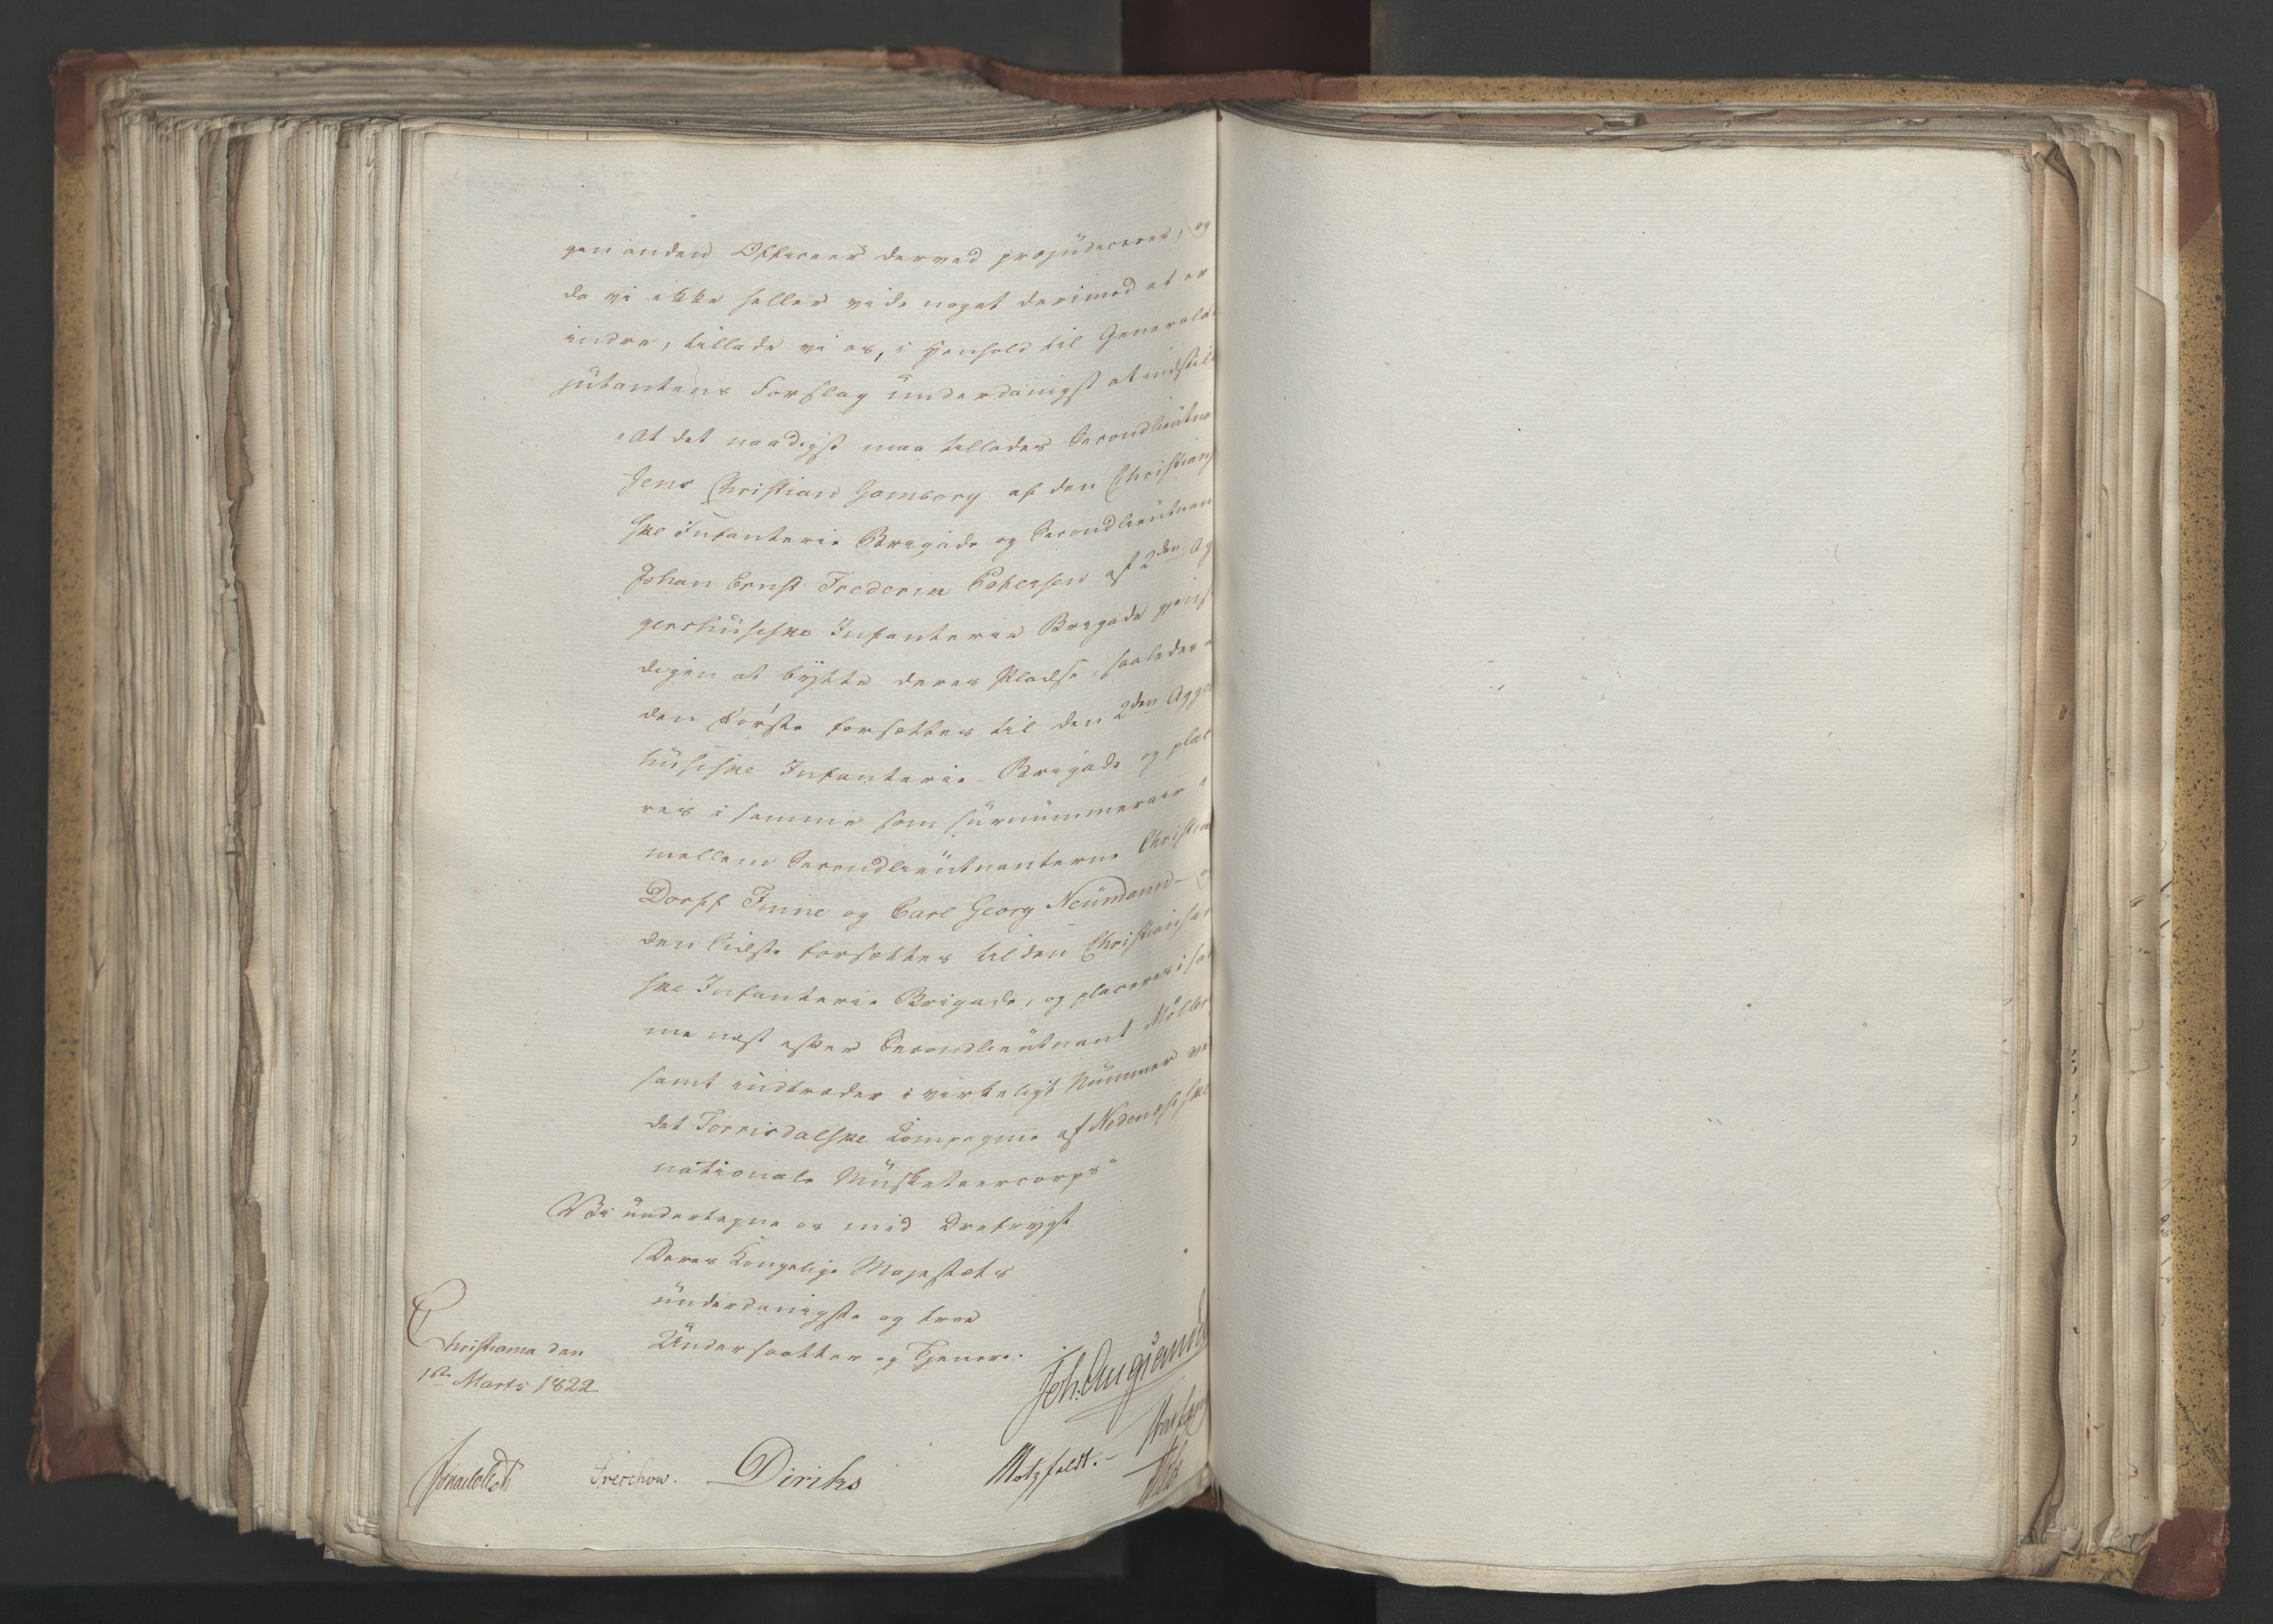 gen anden Officeer derved præjudiceres, og
da vi ikke heller vide noget derimod at er
indre, tillade vi os, i Henhold til Generalad
jutantens Forslag underdanigst at indstil
"At det naadigst maa tillades Secondlieutna
Jens Christian Gamborg af den Christians
ske Infanterie Brigade og Secondlieutnan
Johan Ernst Frederik Petersen af 2den Ag
gershusiske Infanterie Brigade gjens
digen at bytte deres Pladse, saaledes a
den Første forsættes til den 2den Agger
husiske Infanterie-Brigade og plac
res i samme som surnummerair i
mellem Secondlieutnanterne Christian
Dorph Tunne og Carl Georg Neumann - og
den Sidste forsættes til den Christiansan
ske Infanterie Brigade, og placeres i sam
me næst efter Secondlieutnant Möller
samt indtræder i virkeligt Nummer ve
det Torrisdalske Kompagnie af Nedenæsiske
nationale Musketeercorps"
Vi undertegne os med Dretrygt
Deres Kongelige Majestæts
underdanigste og troe
Undersaatter og Tjenere.
Christiania den
1ste Marts 1822
Joh: Aug: Sandels
Treschow. Diriks Motzfeldt.